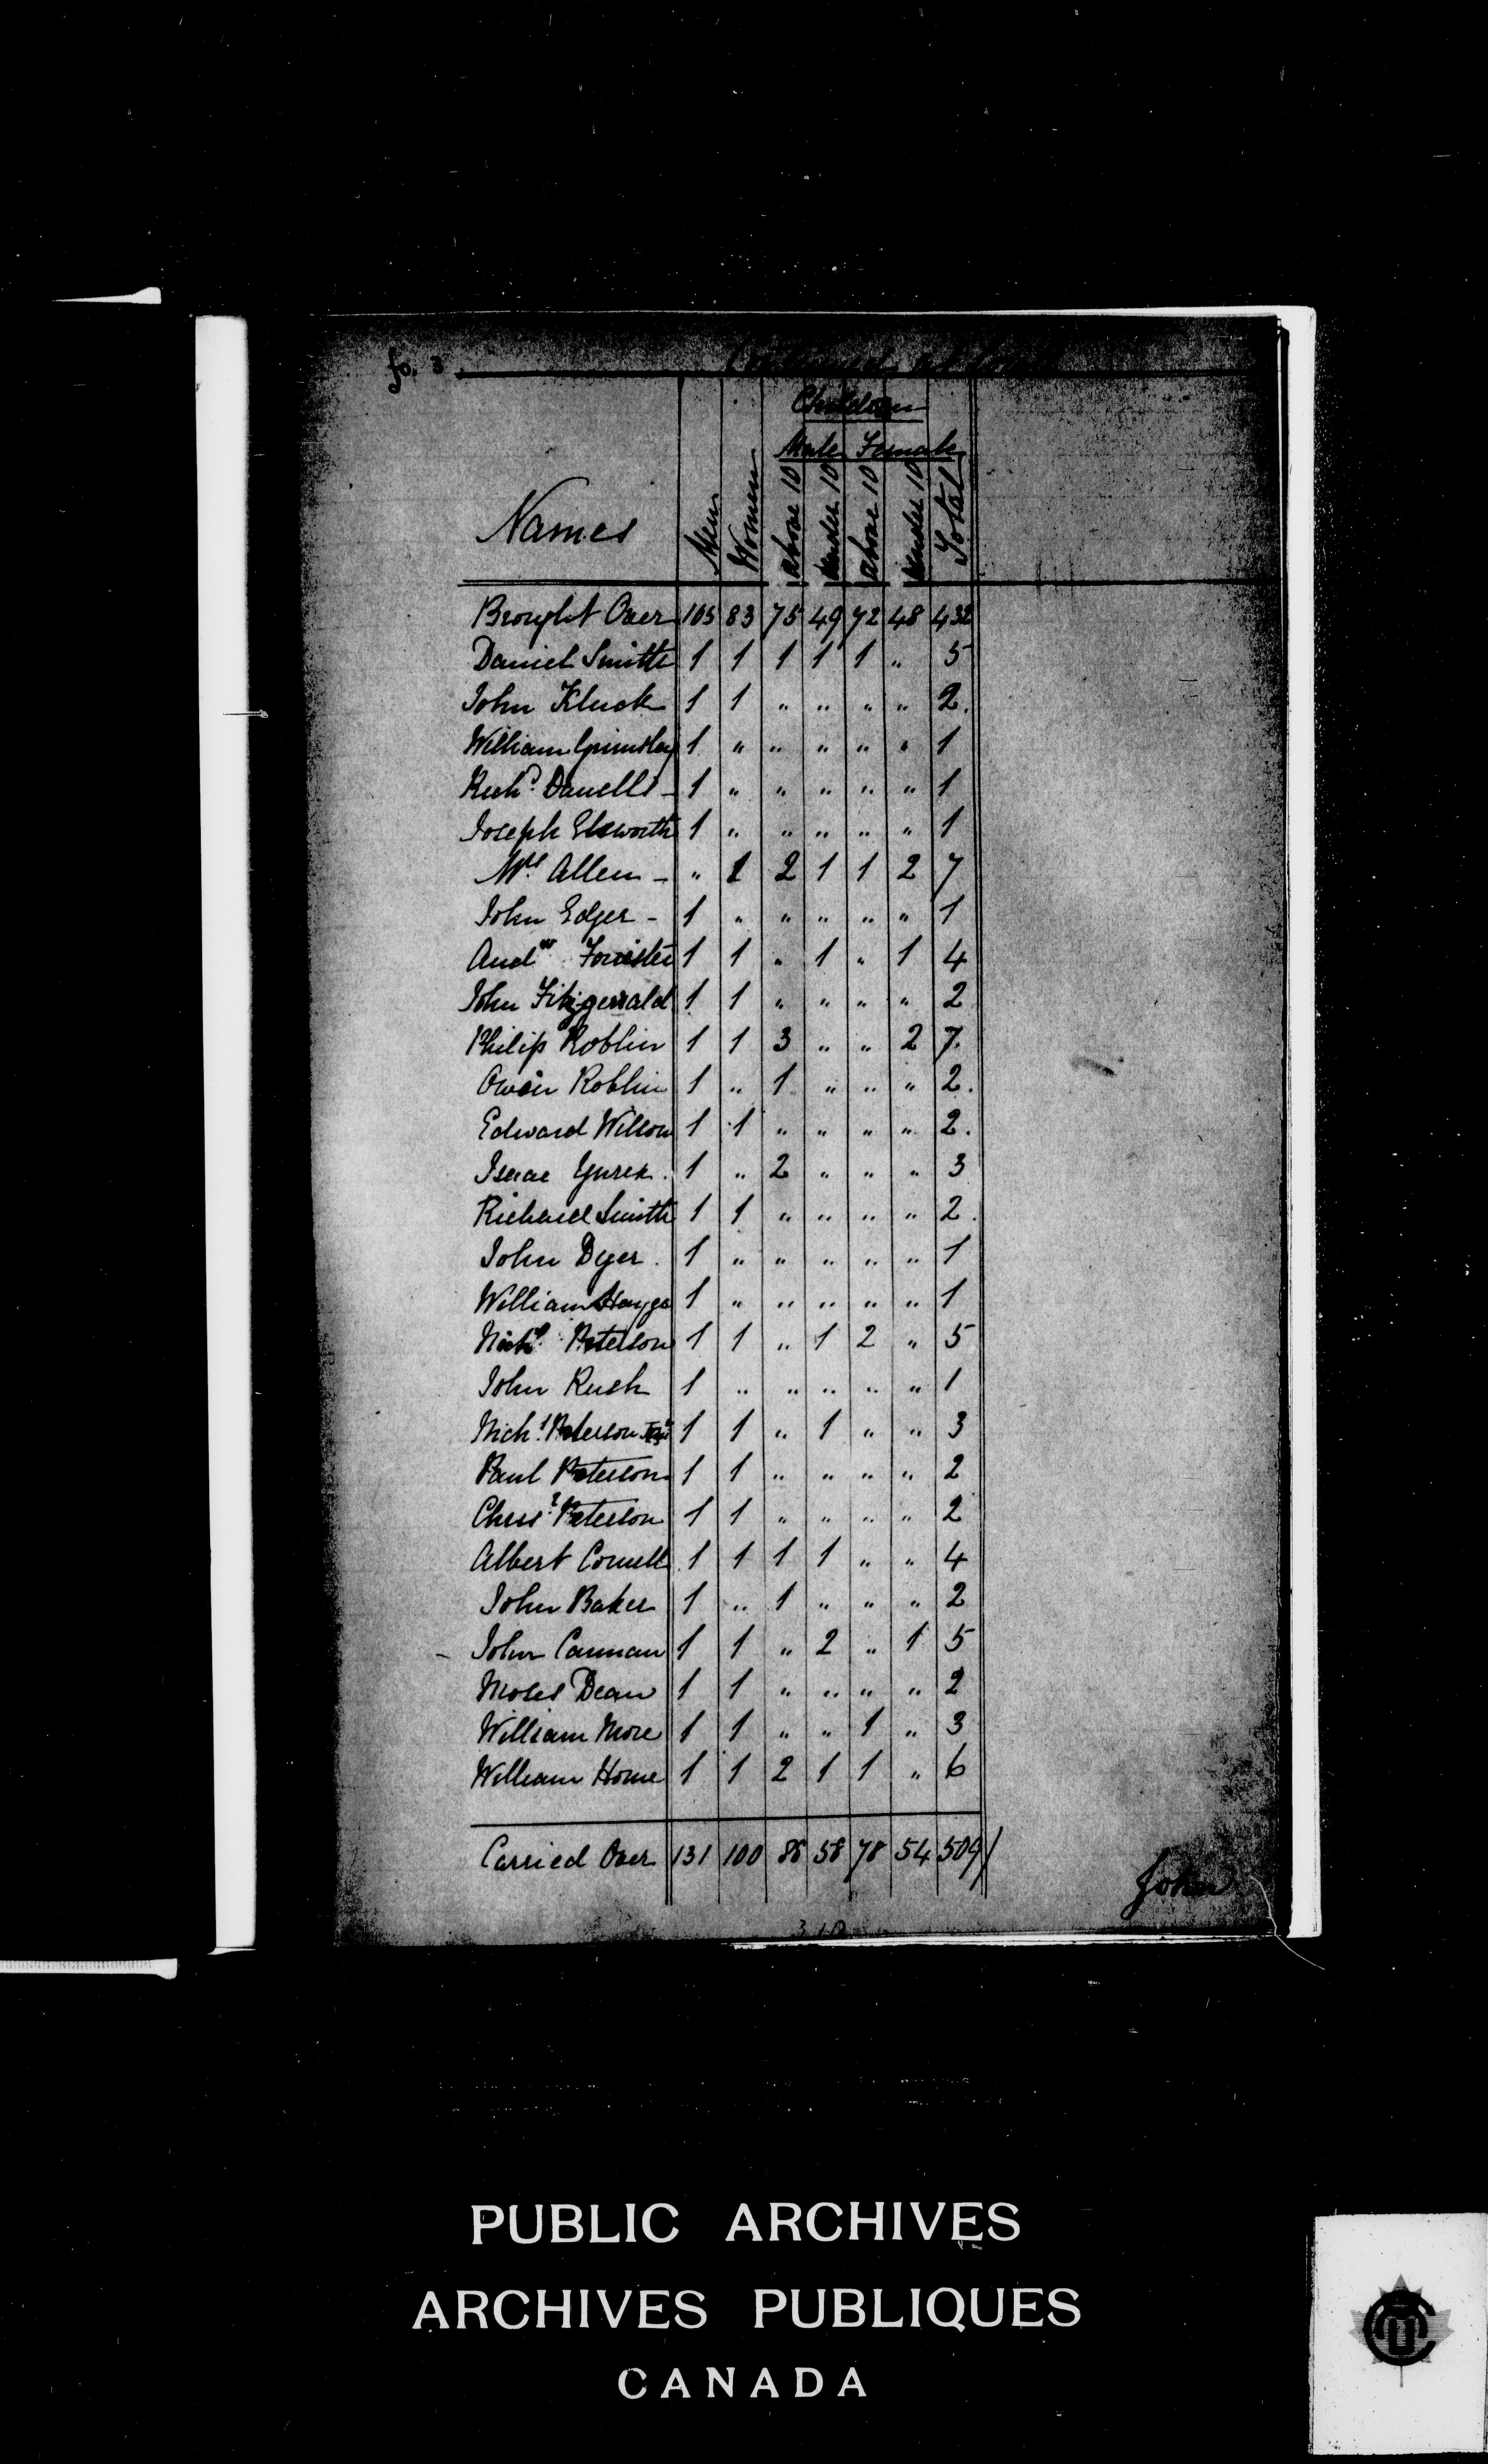 fo. 3
Children
Male Female
Names Men Women above 10 under 10 above 10 under 10 Total
Brought Over 105 83 75 49 72 48 432
Daniel Smith 1 1 1 1 1 " 5
John Kluck 1 1 " " " " 2.
William Grimsley 1 " " " " " 1
Richd. Danells - 1 " " " " " 1
Joseph Elsworth 1 " " " " " 1
Mrs. Allen - " 1 2 1 1 2 7
John Edger - 1 " " " " " 1
Andw Forrister 1 1 " 1 " 1 4
John Fitzgerrald 1 1 " " " " 2
Philip Roblin 1 1 3 " " 2 7.
Owen Roblin 1 " 1 " " " 2.
Edward Wilson 1 1 " " " " 2.
Isaac 1 " 2 " " " 3
Richard Smith 1 1 " " " " 2.
John Dyer. 1 " " " " " 1
William Hayge 1 " " " " " 1
Nichl. Peterson 1 1 " 1 2 " 5
John Rush 1 " " " " " 1
Nichl. Peterson Junr 1 1 " 1 " " 3
Paul Peterson 1 1 " " " " 2
Chrisr. Peterson 1 1 " " " " 2
Albert Cornell 1 1 1 1 " " 4
John Baker 1 " 1 " " " 2
- John Cannan 1 1 " 2 " 1 5
Moses Dean 1 1 " " " " 2
William More 1 1 " " 1 " 3
William Home 1 1 2 1 1 " 6
Carried Over 131 100 86 58 78 54 509/
John
PUBLIC ARCHIVES
ARCHIVES PUBLIQUES
CANADA